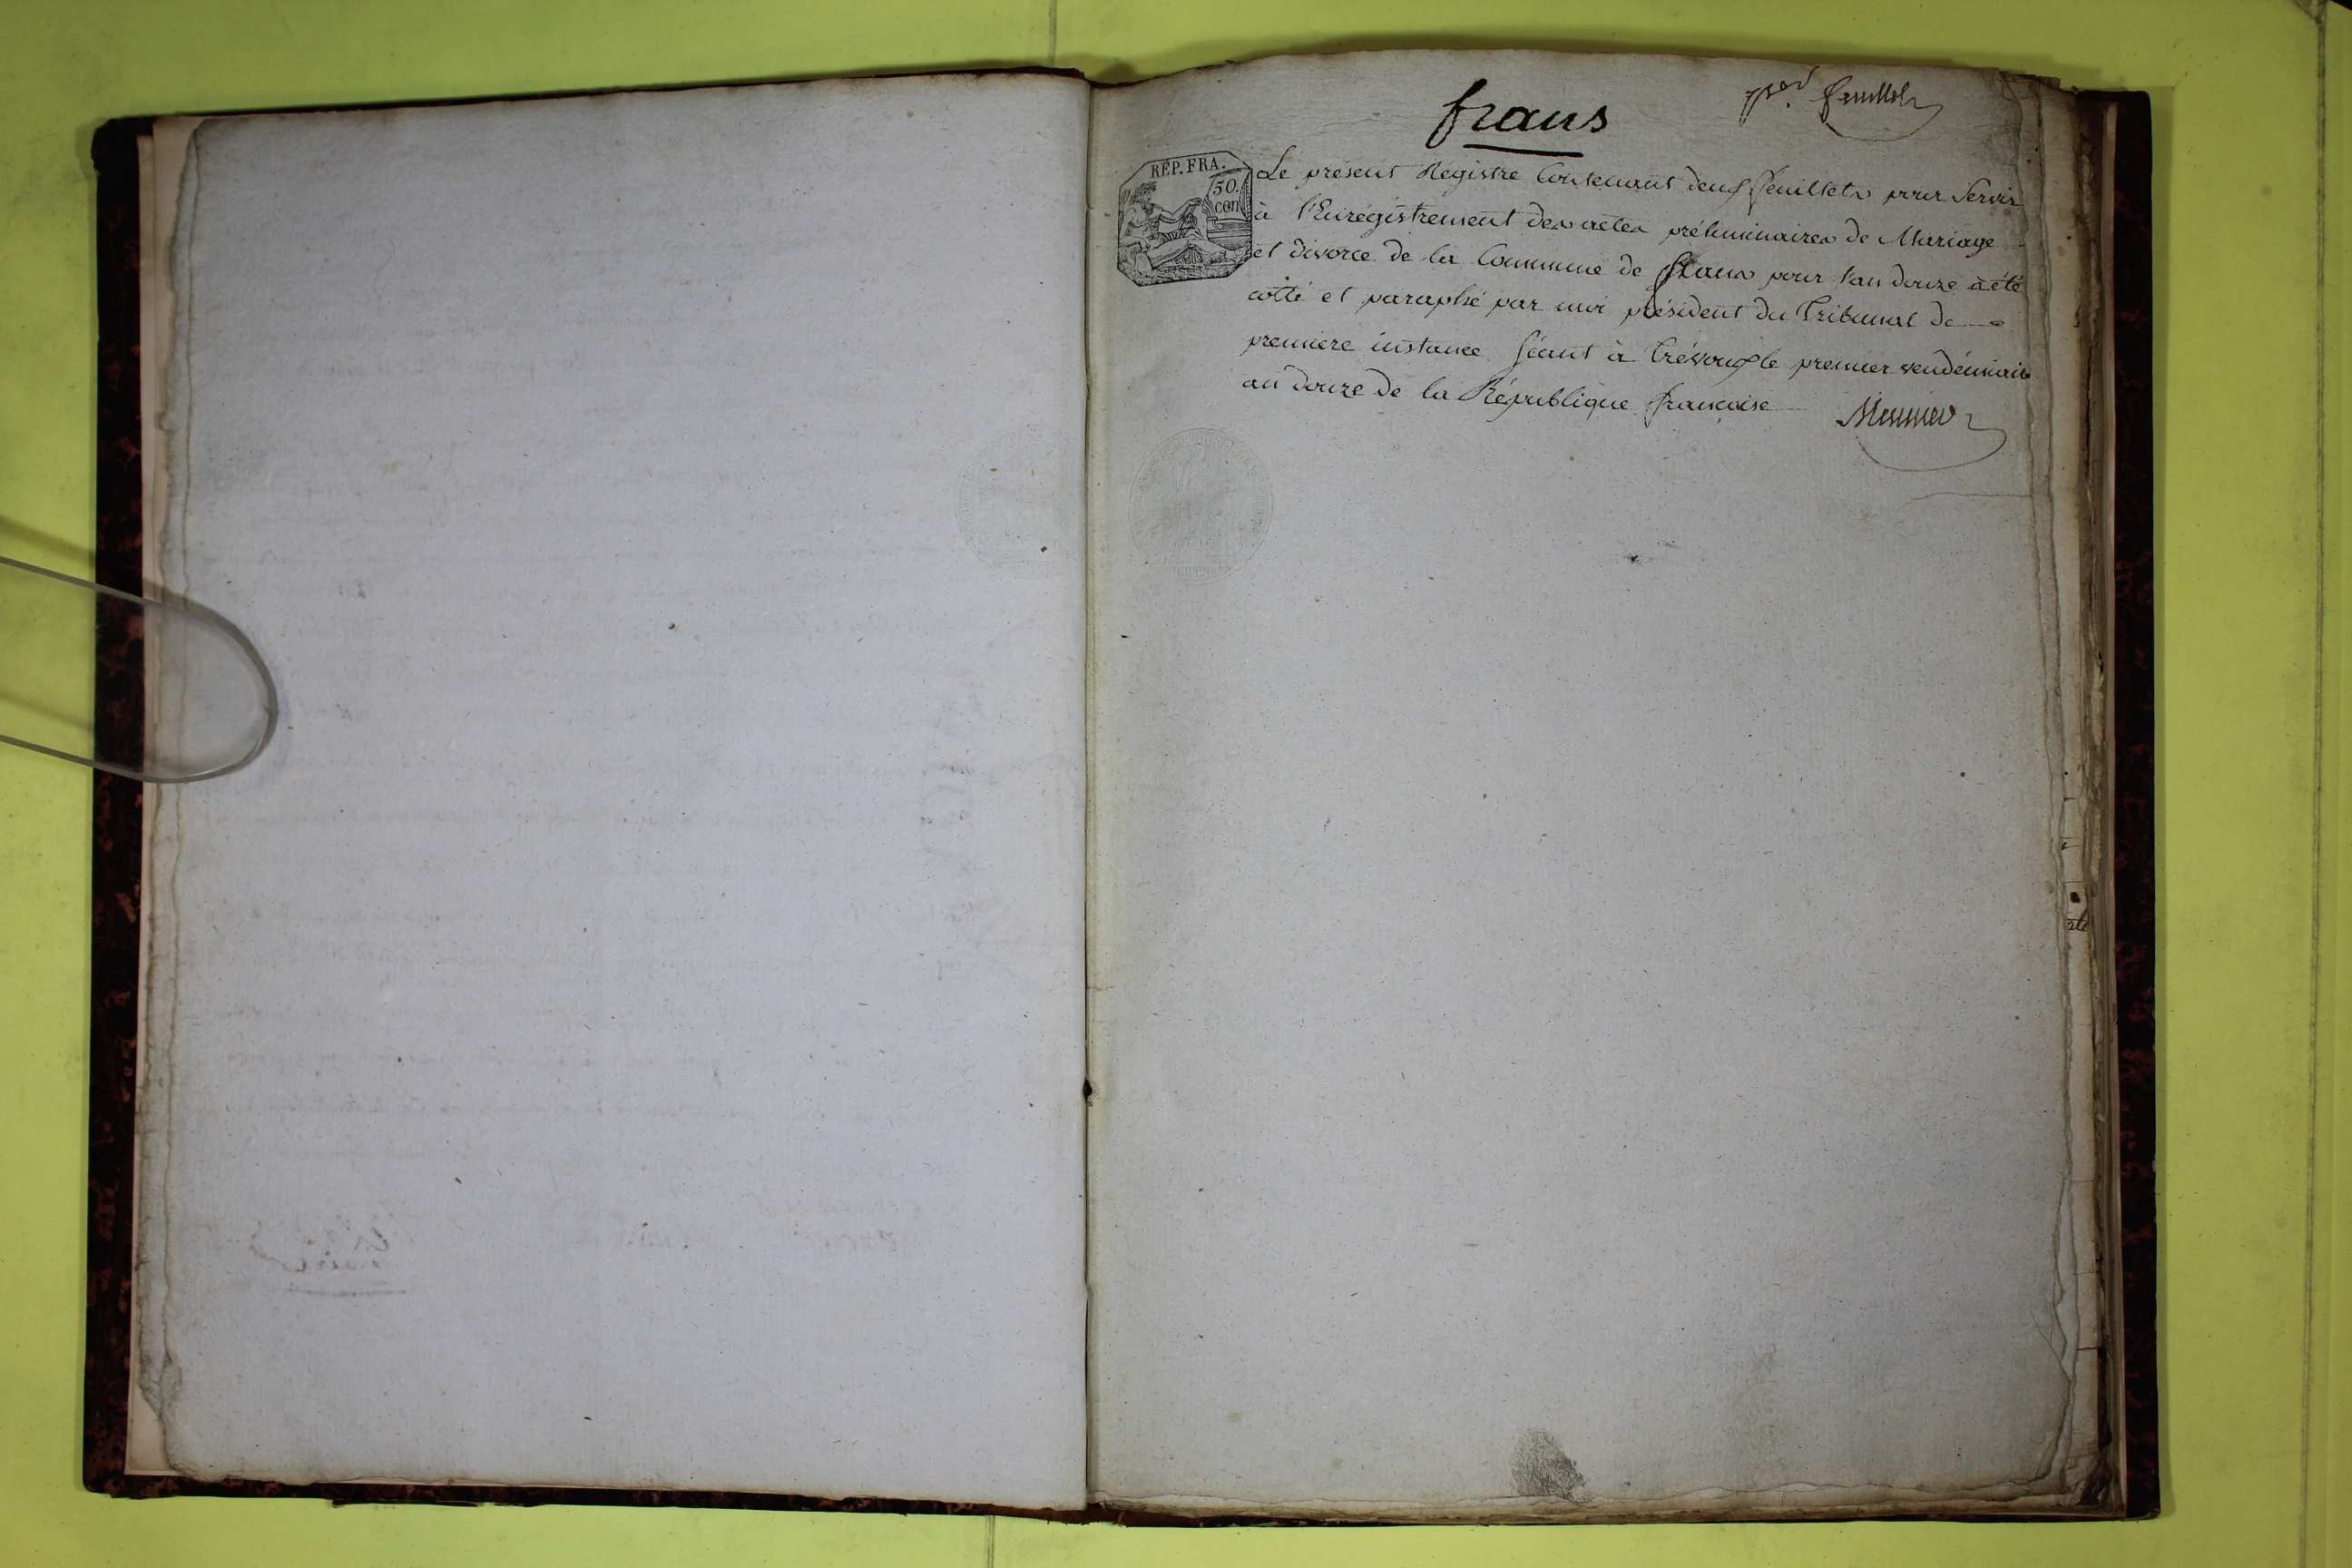 frans
feuillet
RÉP. FRA.
50.
cen
Le présent Régistre Contenant deux feuillets pour Servir
à l'Enrégistrement des actes préliminaires de Mariage
et divorce de la Commune de frans pour l'an douze a été
cotté et paraphé par moi président du Tribunal de
premiere instance Séant à Trévoux le premier vendémiaire
an douze de la République française